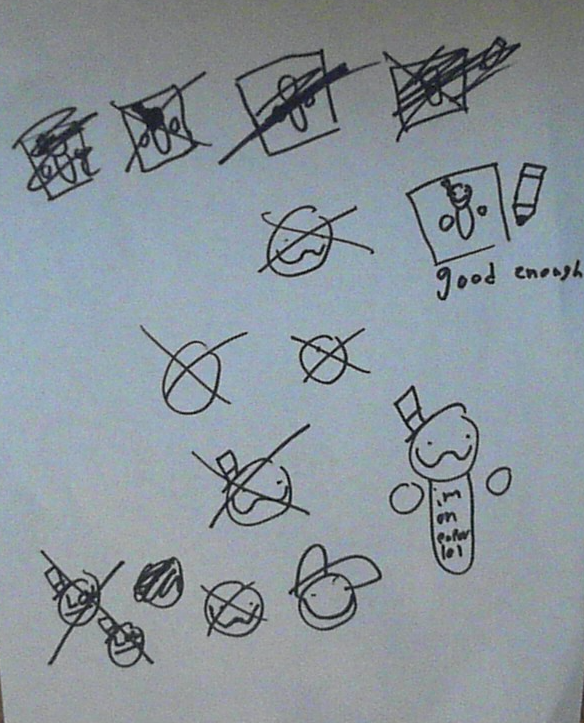 good enough
im
on
paper
lol